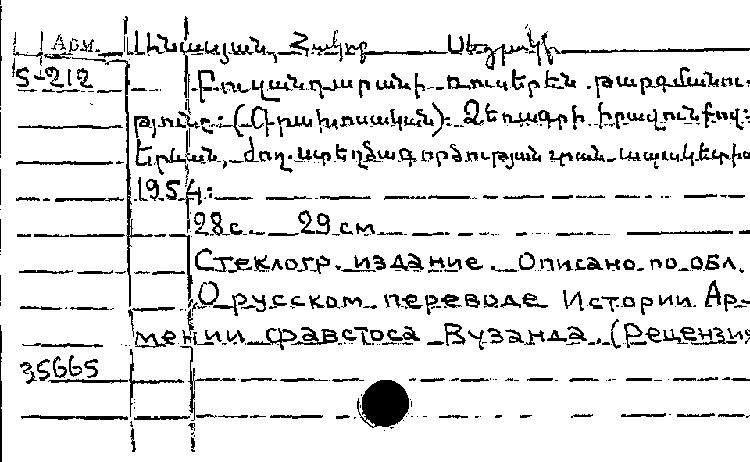 Арм. Մինասյան, Հակոբ Սեդրակի
5-212 Բուզանդարանի ռուսերեն թարգմանու-
թյունը: (Գրախոսական): Ձեռագրի իրավունքով:
Երևան,
1954:
28 с. 29 см
Стеклогр. издание. Описано по обл.
О русском переводе Истории Ар-
мении Фавстоса Вузанда. (Рецензия
35665